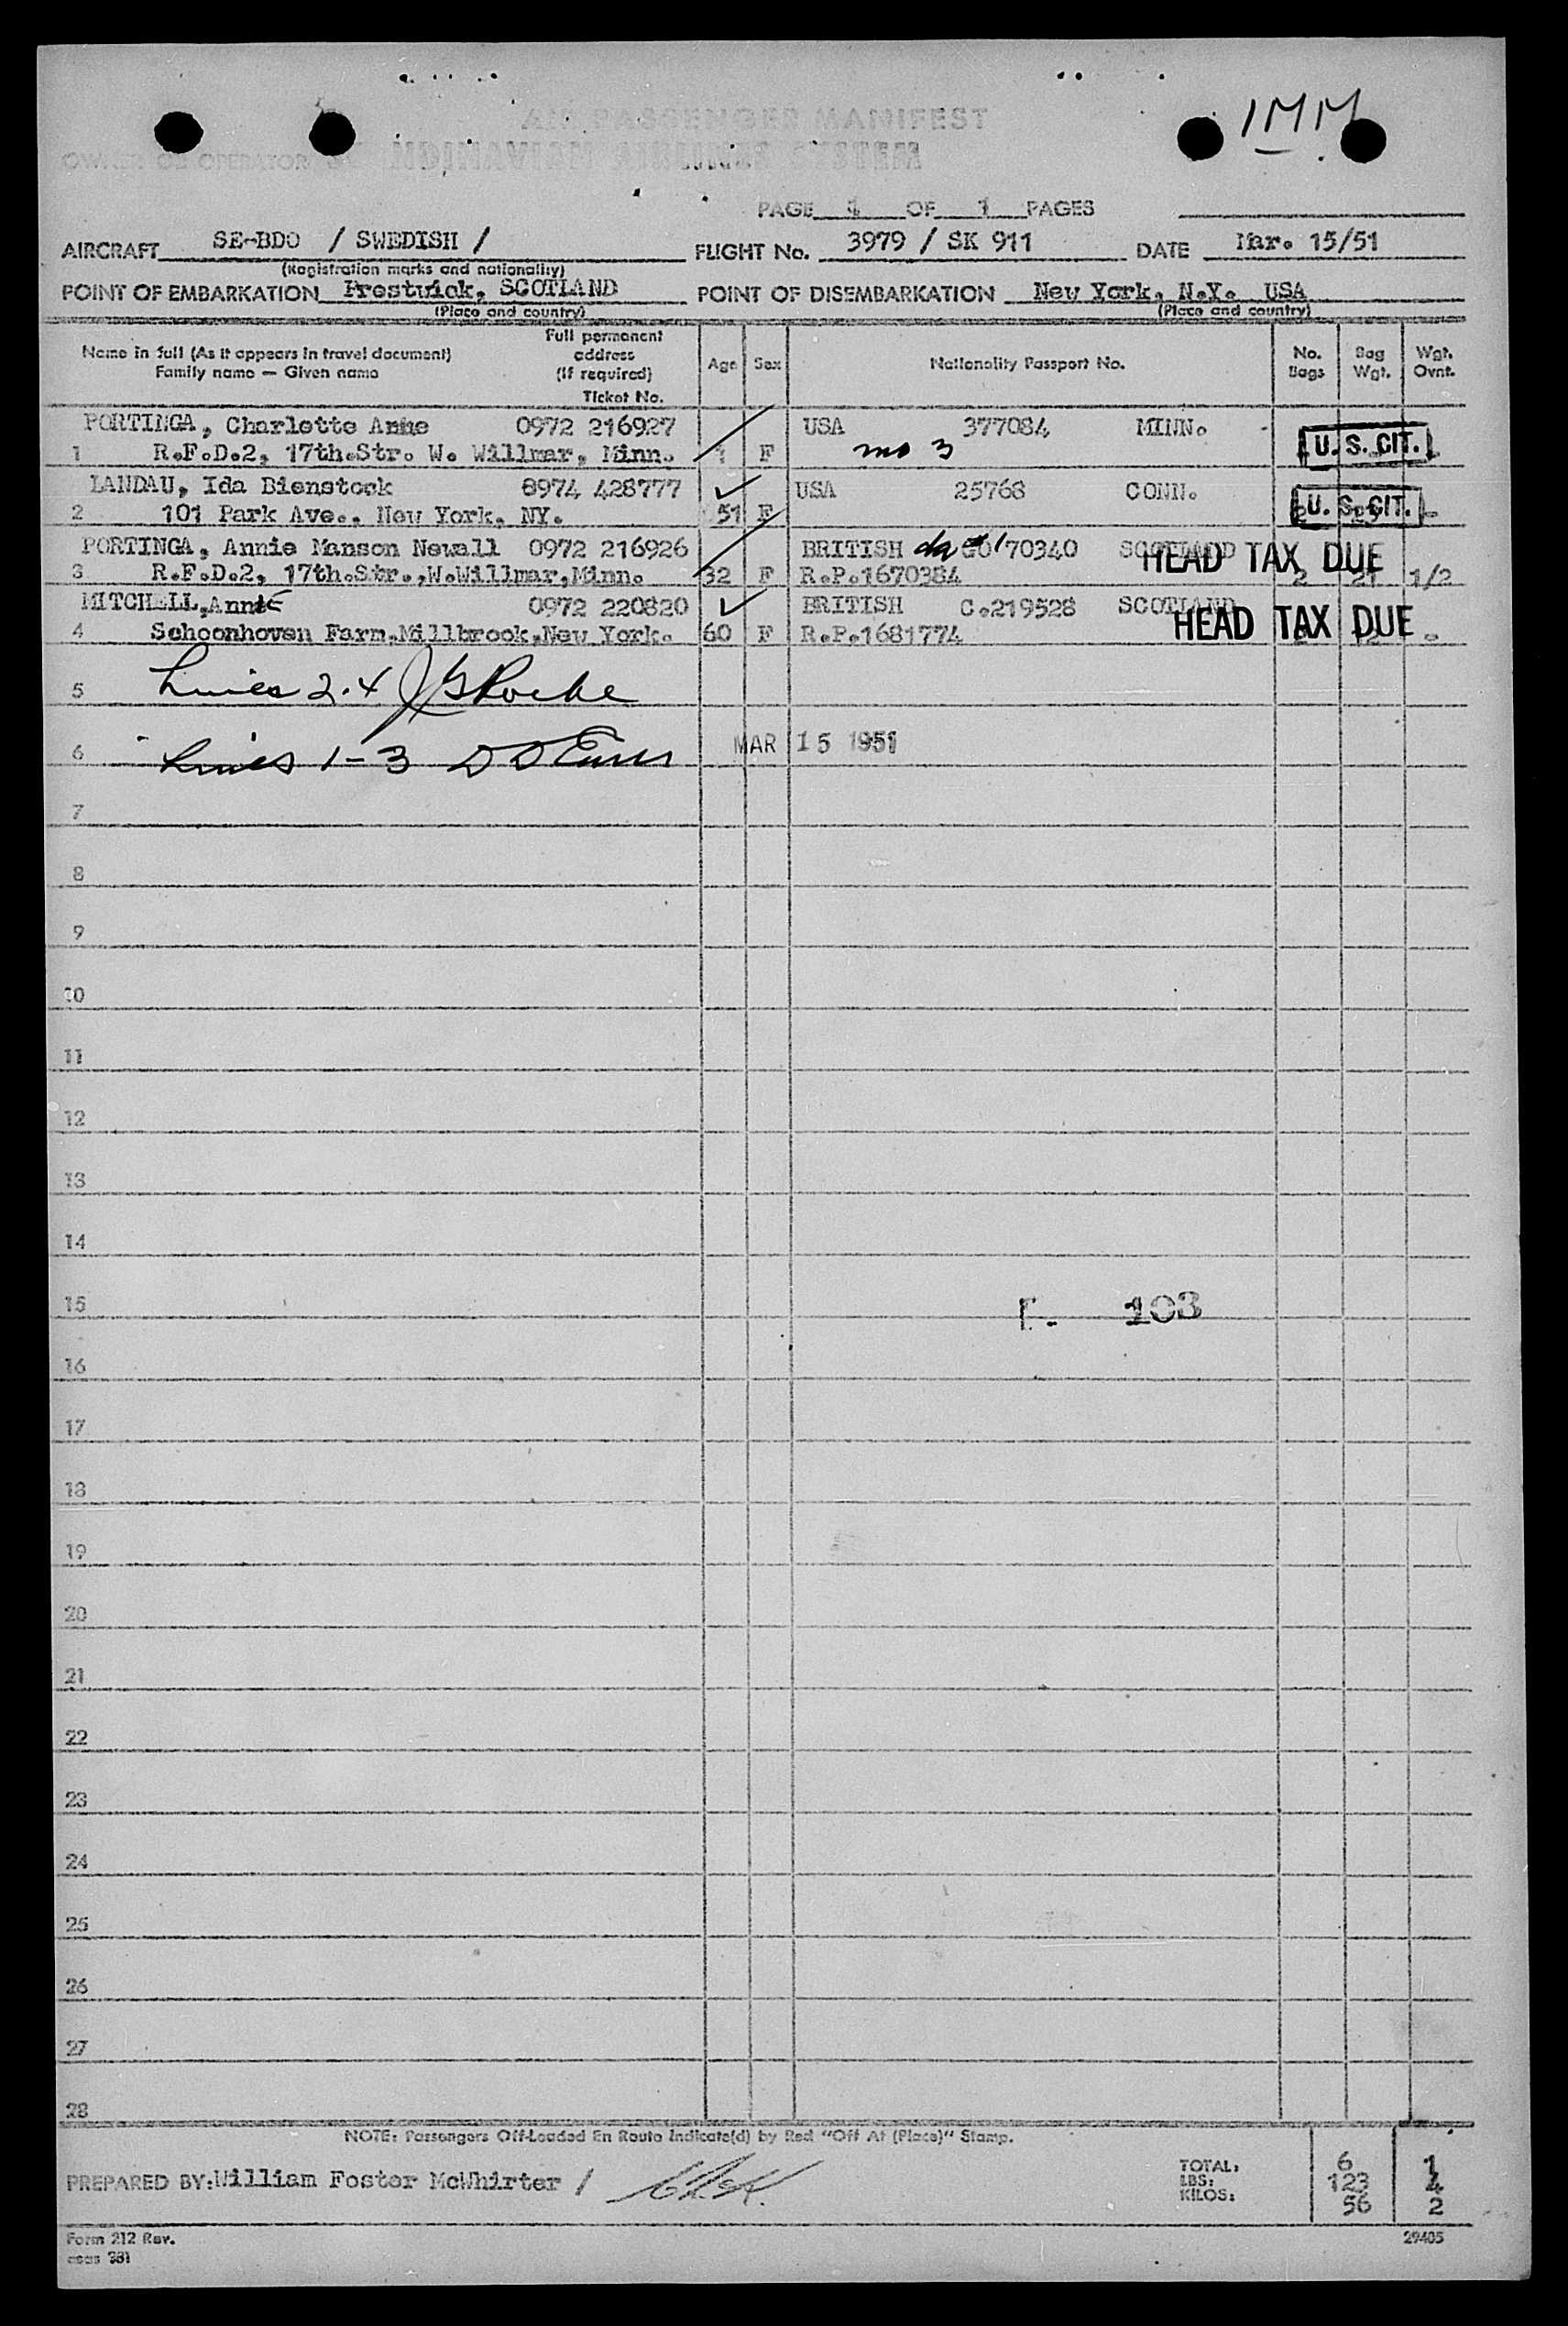 1MM
AIR PASSENGER MANIFEST
OWNER OR OPERATOR NDINAVIAN AIRLINES SYSTEM
PAGE 1 OF 1 PAGES
AIRCRAFT SE-BDO / SWEDISH / FLIGHT No. 3979 / SK 911 DATE Mar. 15/51
(Registration marks and nationality)
POINT OF EMBARKATION Prestwick, SCOTLAND POINT OF DISEMBARKATION New York, N.Y. USA
(Place and country) (Place and country)
Name in full (As it appears in travel document) Family name — Given name
Full permanent address (If required) Ticket No.
Age Sex Nationality Passport No. No. Bags Bag Wgt. Wgt. Ovnt.
PORTINGA, Charlotte Anne 0972 216927 USA 377084 MINN. U. S. CIT.
1 R.F.D.2, 17th.Str. W. Willmar, Minn. 1 F mo 3
LANDAU, Ida Bienstock 8974 428777 USA 25768 CONN. U. S. CIT.
2 101 Park Ave., New York, NY. 51 F
PORTINGA, Annie Manson Newall 0972 216926 BRITISH 70340 SCOTLAND HEAD TAX DUE
3 R.F.D.2, 17th.Str.,W.Willmar,Minn. 32 F R.P.1670384 2 21 1/2
MITCHELL,Annie 0972 220820 BRITISH C.219528 SCOTLAND HEAD TAX DUE
4 Schoonhoven Farm,Millbrook,New York. 60 F R.P.1681774
5 Lines 2.4 JGRoche
6 Lines 1-3 MAR 15 1951
7
8
9
10
11
12
13
14
15 103
16
17
18
19
20
21
22
23
24
25
26
27
28
NOTE: Passengers Off-Loaded En Route Indicate(d) by Red "Off At (Place)" Stamp.
PREPARED BY: William Foster McWhirter /
TOTAL: 6 1
LBS: 123 4
KILOS: 56 2
Form 212 Rev.
29405